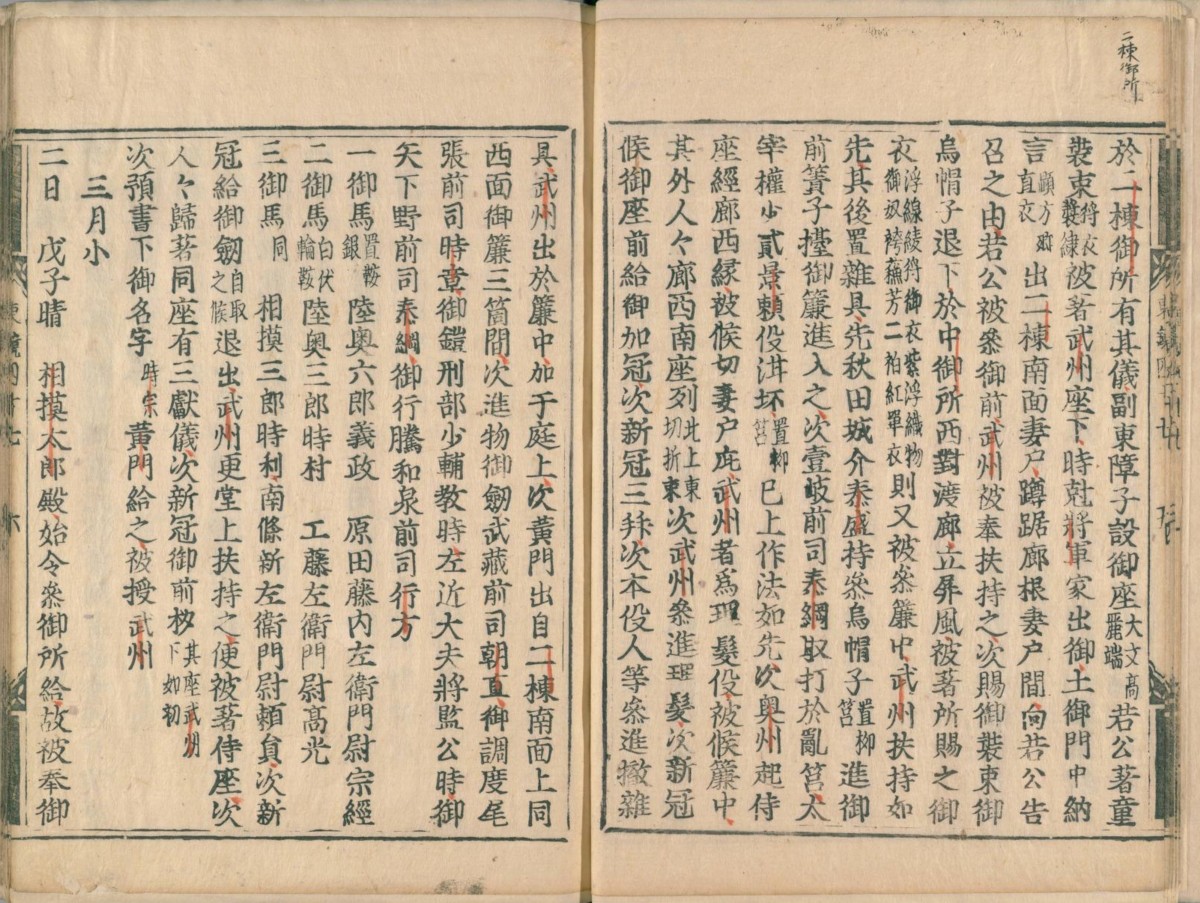 二棟御所
於二棟御所有其儀副東障子設御座大文高麗端若公著童
裝束狩衣奬練被著武州座下時尅將軍家出御土御門中納
言顯方卿直衣出二棟南面妻戶蹲踞廊根妻戶間向若公告
召之由若公被參御前武州被奉扶持之次賜御裝束御
烏帽子退下於中御所西對渡廊立屏風被著所賜之御
衣浮線綾狩御衣紫浮織物御奴袴蘓芳二衵紅單衣則又被參簾中武州扶持如
先其後置雜具先秋田城介泰盛持參烏帽子置柳筥進御
前簀子擡御簾進入之次壹岐前司泰綱取打於亂筥太
宰權少貳景頼役泔坏置柳筥巳上作法如先次奥州起侍
座經廊西縁被候切妻戶庇武州者爲理髮役被候簾中
其外人々廊西南座列北上東切折東次武州參進理髮次新冠
候御座前給御加冠次新冠三拜次本役人等參進撤雜
具武州出於簾中加于庭上次黃門出自二棟南面上同
西面御簾三箇間次進物御劔武藏前司朝直御調度尾
張前司時章御鎧刑部少輔教時左近大夫將監公時御
矢下野前司泰綱御行騰和泉前司行方
一御馬置鞍銀陸奥六郎義政 原田藤内左衛門尉宗經
二御馬白伏輪鞍陸奥三郎時村 工藤左衛門尉髙光
三御馬同 相摸三郎時利南條新左衛門尉頼貟次新
冠給御劔自取之候退出武州更堂上扶持之便被著侍座次
人々歸著同座有三獻儀次新冠御前杪其座武州下如初
次預書下御名字時宗黃門給之被授武州
三月小
二日 戊子晴 相摸太郎殿始令參御所給故被奉御